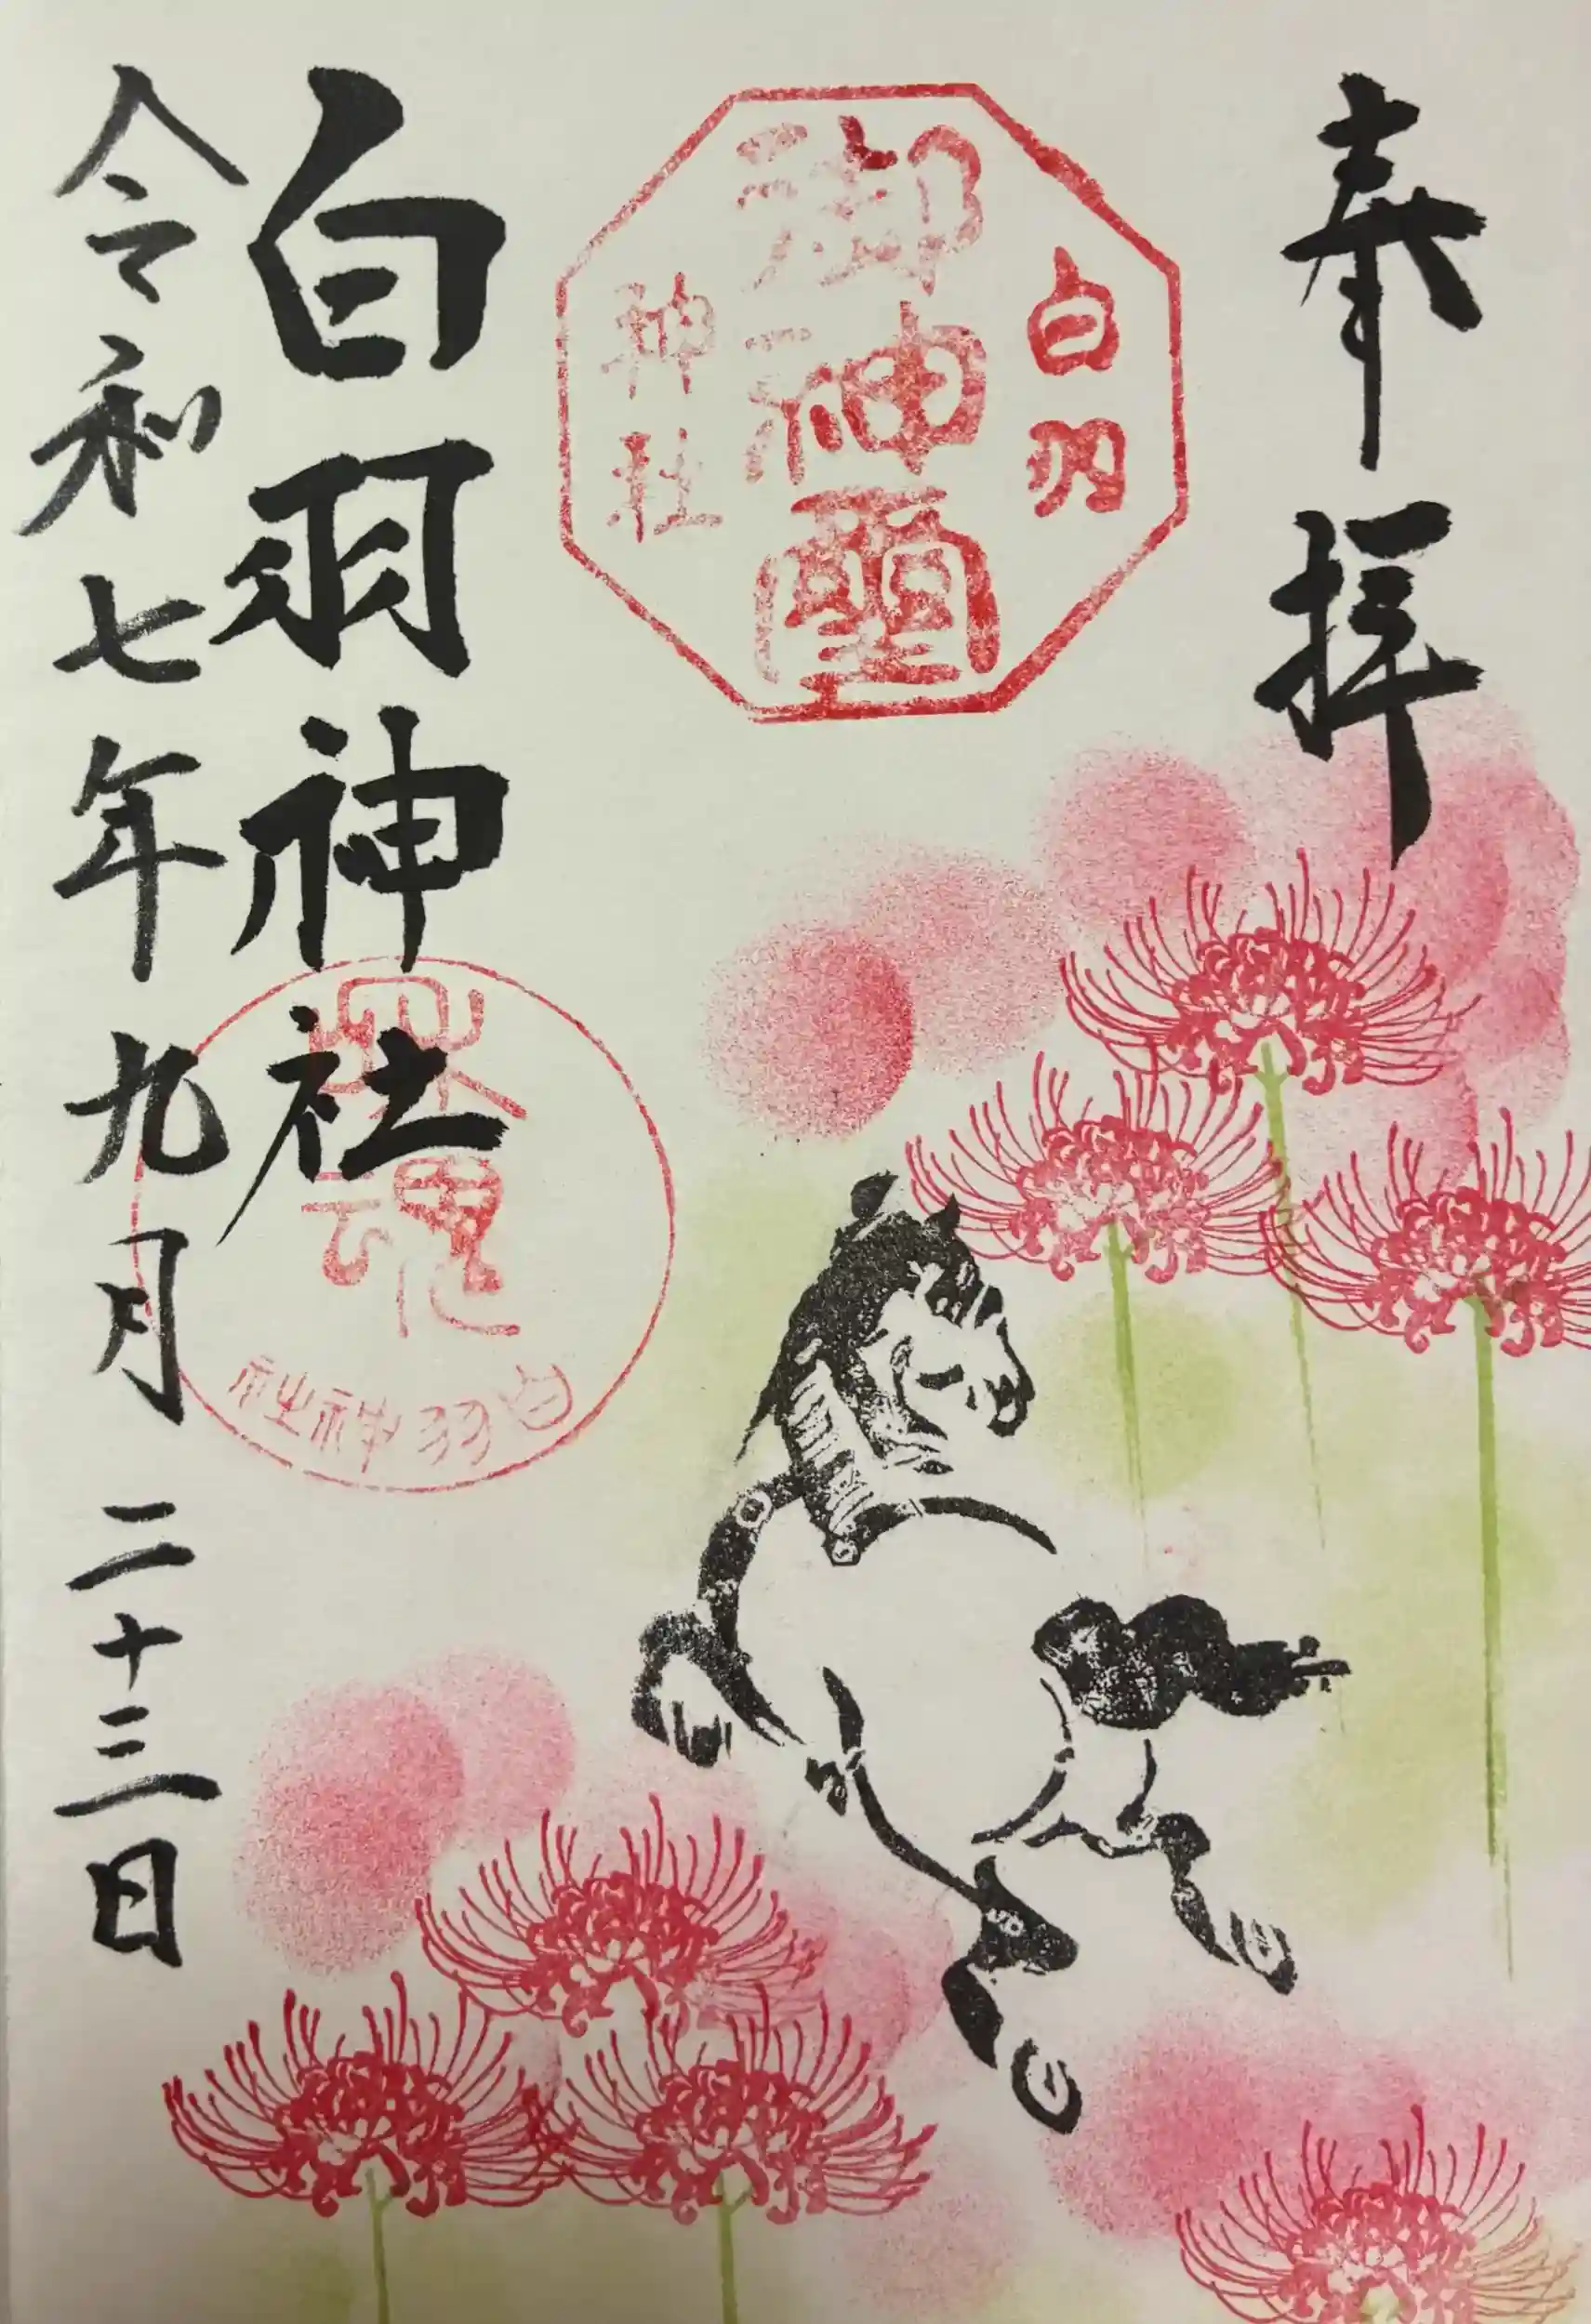 奉拝
白羽
御神璽
神社
白羽神社
令和七年九月二十三日
白羽神社